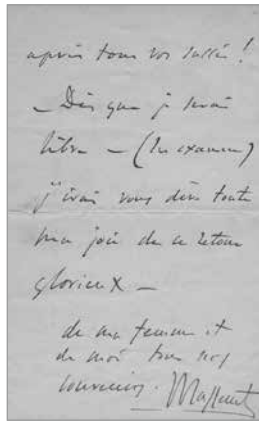 après tous vos succès !
– Dès que je serai
libre – (les examens)
j'irai vous dire toute
ma joie de ce retour
glorieux –
de ma femme et
de moi tous nos
souvenirs. Massenet